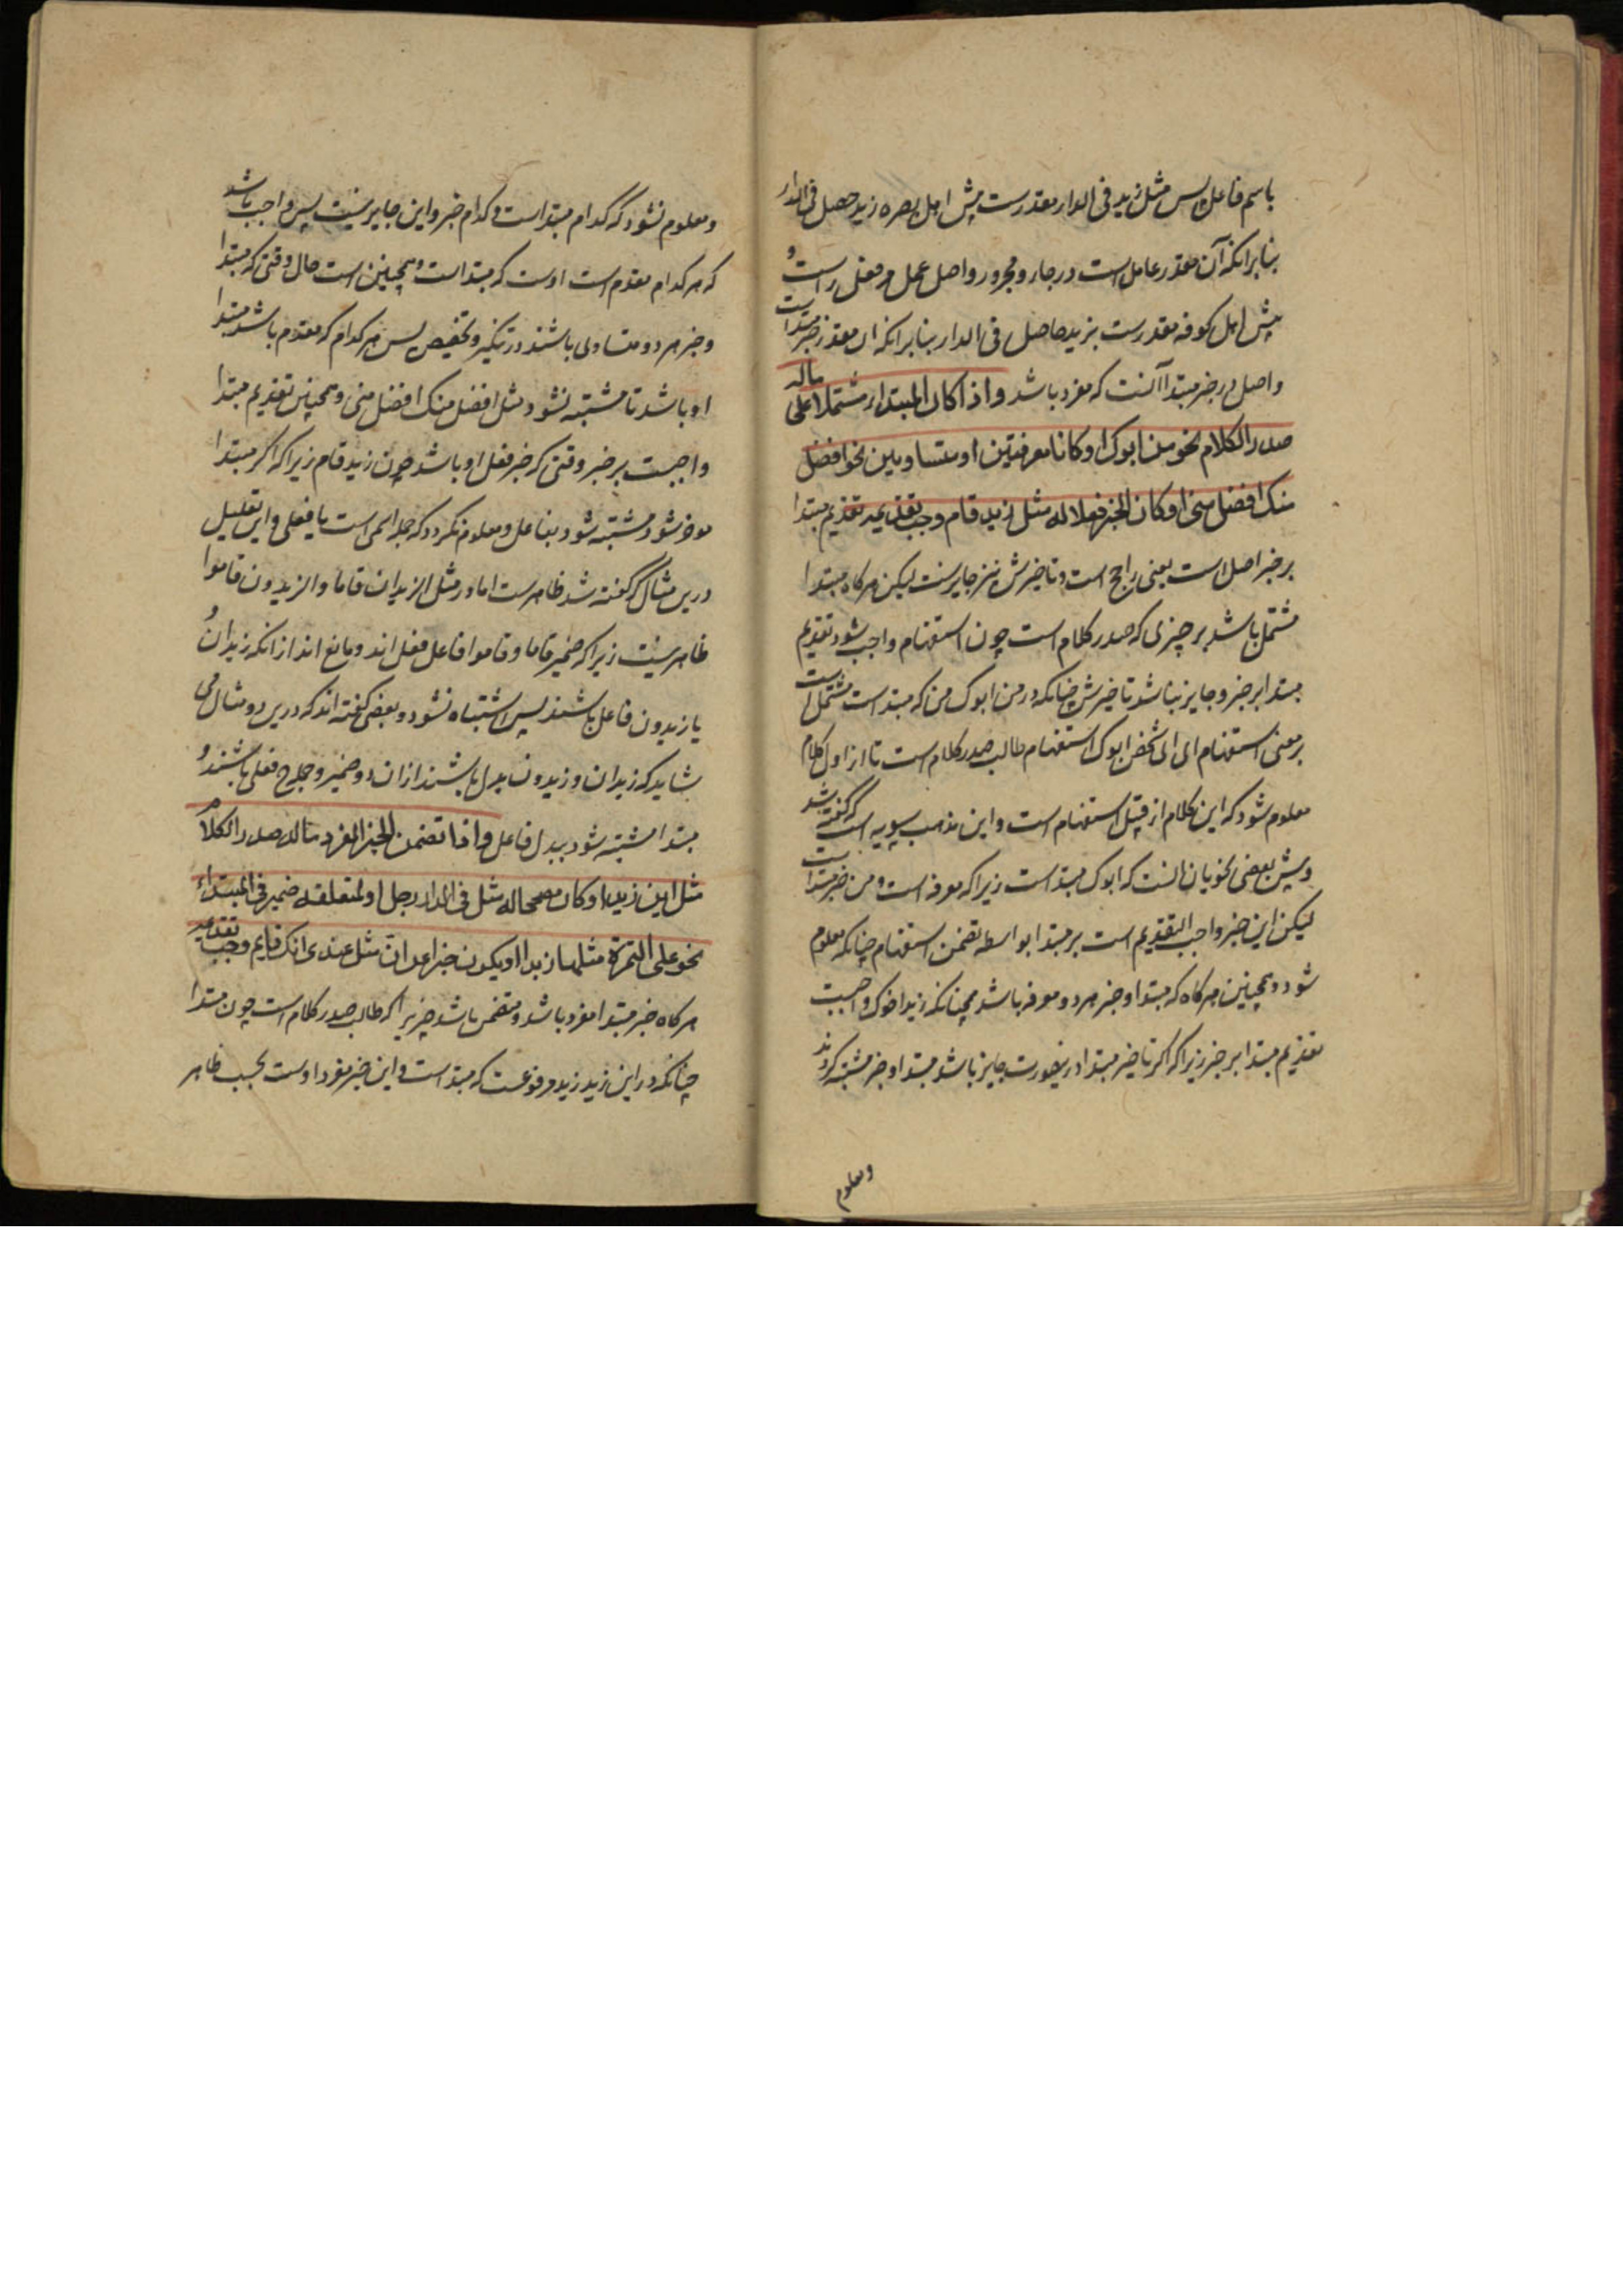 باسم فاعل پس مثل زید فی الدار مقدرست پیش اهل بصره زید حصل فی الدار
بنابر آنکه آن مقدر عامل است در جار و مجرور و اصل عمل مر فعل راست و
پیش اهل کوفه مقدرست بزید حاصل فی الدار بنابر انکه ان مقدر خبر مبتداست
و اصل در خبر مبتدا آنست که مفرد باشد واذا کان المبتداء مشتملا علی ماله
صدر الکلام نحو من ابوک او کانا معرفتین او متساویین نحو افضل
منک افضل منی او کان الخبر فعلا له مثل زید قام وجب تقدیمه تقدیم مبتدا
بر خبر اصل است یعنی راجح است و تاخیرش نیز جایزست لیکن هرکاه مبتدا
مشتمل باشد بر چیزی که صدر کلام است چون استفهام واجب شود تقدیم
مبتدا بر خبر و جایز نباشد تاخیرش چنانکه در من ابوک من که مبتداست مشتمل است
بر معنی استفهام ای ای شخص ابوک استفهام طالب صدر کلام است تا از اول کلام
معلوم شود که این کلام از قبیل استفهام است و این مذهب سیبویه است که گفته شد
و پیش بعضی نحویان انست که ابوک مبتداست زیرا که معرفه است و من خبر مبتداست
لیکن این خبر واجب التقدیم است بر مبتدا بواسطه تضمن استفهام چنانکه معلوم
شود و همچنین هرکاه که مبتدا و خبر هر دو معرفه باشد همچنانکه زید اخوک واجبست
تقدیم مبتدا بر خبر زیرا که اکر تاخیر مبتدا درینصورت جایز باشد مبتدا و خبر مشتبه کردند
ومعلوم
و معلوم نشود که کدام مبتداست و کدام خبر و این جایز نیست پس واجب باشد
که هر کدام مقدم است اوست که مبتداست و همچنین است حال وقتی که مبتدا
و خبر هر دو متساوی باشند در تنکیر و تخصیص پس هر کدام که مقدم باشد مبتدا
او باشد تا مشتبه نشود مثل افضل منک افضل منی و همچنین تقدیم مبتدا
واجبست بر خبر وقتی که خبر فعل او باشد چون زید قام زیرا که اکر مبتدا
موخر شود مشتبه شود بفاعل و معلوم نکردد که جمله اسمی است یا فعلی و این تعلیل
درین مثال که گفته شد ظاهرست اما در مثل الزیدان قاما والزیدون قاموا
ظاهر نیست زیرا که ضمیر قاما و قاموا فاعل فعل اند و مانع اند از انکه زیدان و
یا زیدون فاعل باشند پس اشتباه نشود و بعضی گفته اند که درین دو مثال می
شاید که زیدان و زیدون بدل باشند ازان دو ضمیر و جمله فعلی باشند و
مبتدا مشتبه شود ببدل فاعل واذا تضمن الخبر المفرد ماله صدر الکلام
مثل این زید او کان مصححاله مثل فی الدار رجل او لمتعلقه ضمیر فی المبتداء
نحو علی التمرة مثلها زبدا او یکون خبرا عن انّ مثل عندی انک قایم وجب تقدیمه
هرکاه خبر مبتدا مفرد باشد و متضمن باشد چیزیرا که طالب صدر کلام است چون مبتدا
چنانکه در این زید زید مرفوعست که مبتداست و این خبر مفرد اوست بحسب ظاهر